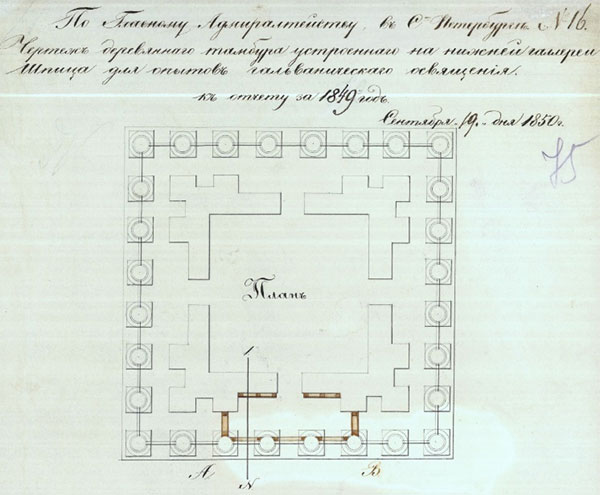 По Главному Адмиралтейству въ С. Петербургѣ. N 16.
Чертежъ деревяннаго тамбура устроеннаго на нижней галереи
Шпица для опытовъ гальваническаго освященія.
къ отчету за 1849 годъ.
Сентября 19. дня 1850 г.
75
Планъ
А В
N